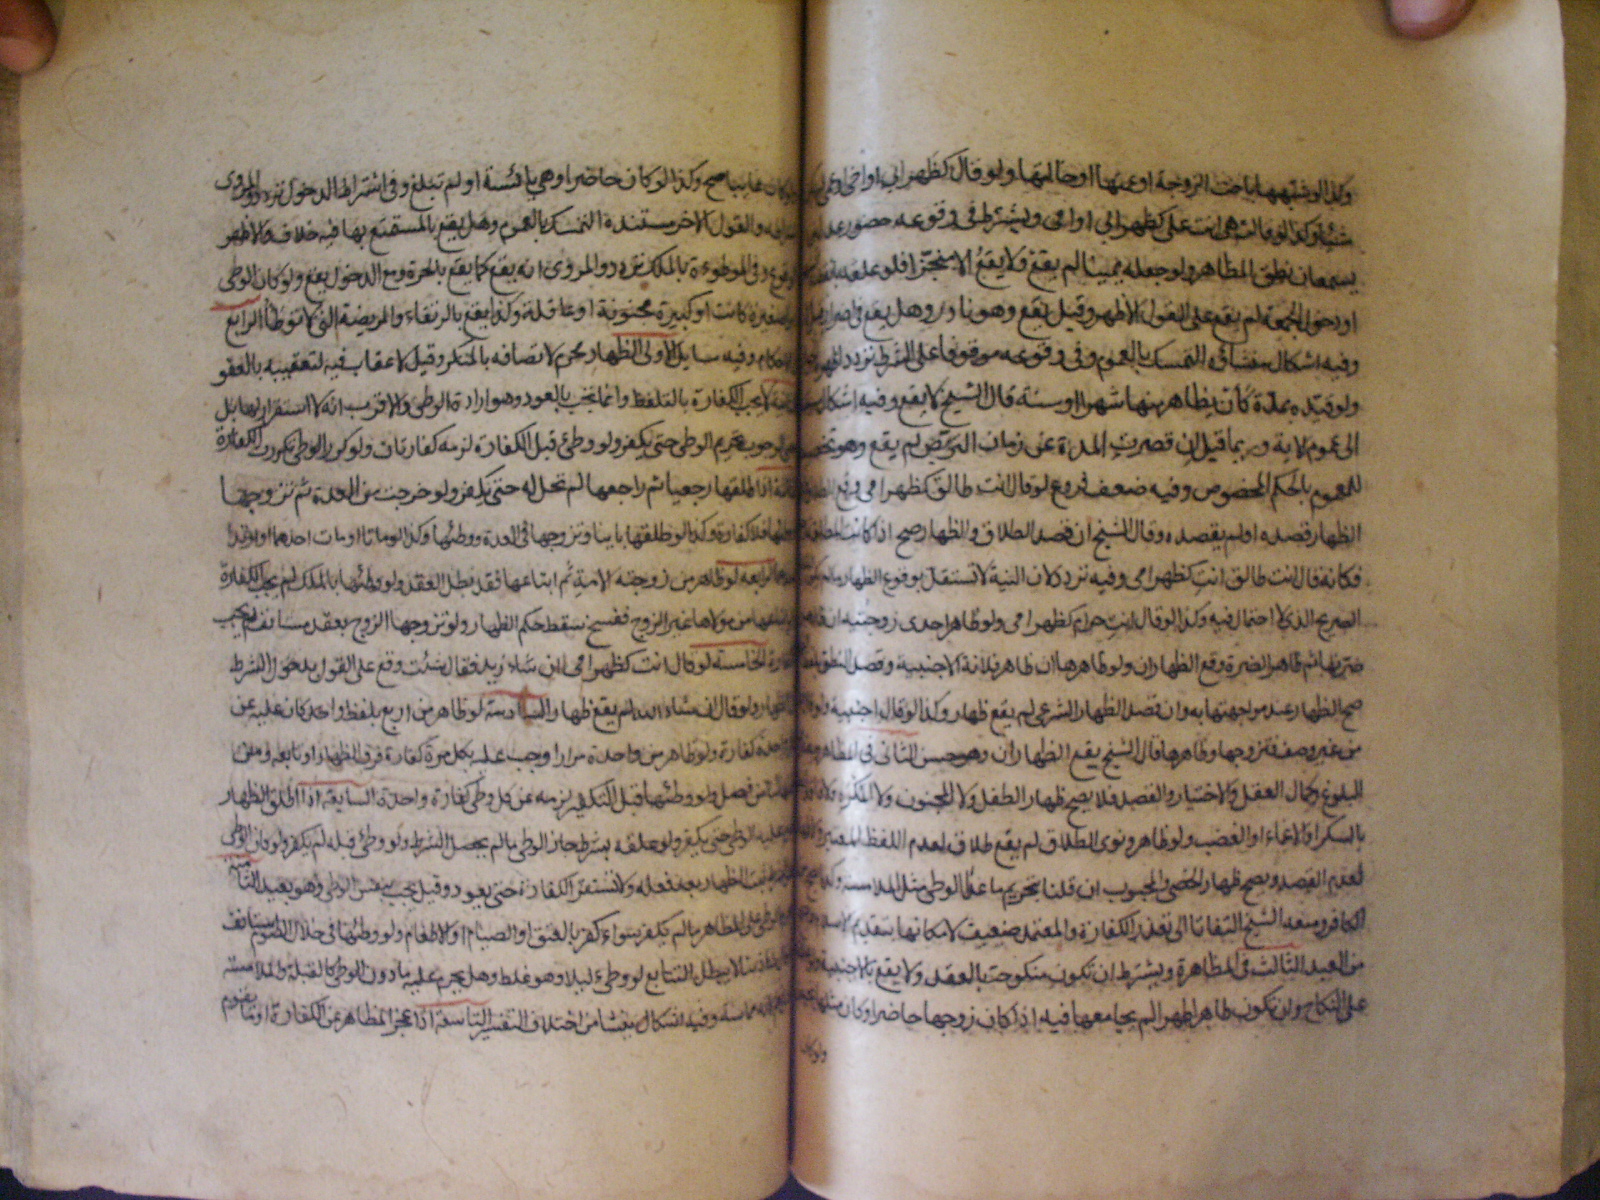 وكذا لو شبهها باخت الزوجة او عمتها او خالتها ولو قال كظهر ابي او اخي او عمي
شيئا وكذا لو قالت هي انت علي كظهر ابي او امي ويشترط في وقوعه حضور عدلين
يسمعان نطق المظاهر ولو جعله يمينا لم يقع ولا يقع الا منجزا فلو علقه بانقضاء
او دخول الجمعة لم يقع على القول الاظهر وقيل يقع وهو نادر وهل يقع في اضرار قيل
وفيه اشكال منشاؤه التمسك بالعموم وفي وقوعه موقوفا على الشرط تردد اظهره
ولو قيده بمدة كان يظاهر منها شهرا او سنة قال الشيخ لا يقع وفيه اشكال
الى عموم الاية وربما قيل ان قصرت المدة عن زمان التربص لم يقع وهو تخصيص
للعموم بالحكم المخصوص وفيه ضعف فروع لو قال انت طالق كظهر امي وقع الطلاق
الظهار قصده او لم يقصده وقال الشيخ ان قصد الطلاق والظهار صح اذا كانت المطلقة
فكانه قال انت طالق انت كظهر امي وفيه تردد لان النية لا تستقل بوقوع الظهار ما لم
الصريح الذي لا احتمال فيه وكذا لو قال انت حرام كظهر امي ولو ظاهر احدى زوجتيه ان
ضرتها ثم ظاهر الضرة وقع الظهاران ولو ظاهرها ان ظاهر فلانة الاجنبية وقصد النطق
صح الظهار عند مواجهتها به وان قصد الظهار الشرعي لم يقع ظهار وكذا لو قال اجنبية ولو
من غير وصف فتزوجها وظاهرها قال الشيخ يقع الظهاران وهو حسن الثاني في المظاهر
البلوغ وكمال العقل والاختيار والقصد فلا يصح ظهار الطفل ولا المجنون ولا المكره ولا
بالسكر او الاغماء او الغضب ولو ظاهر ونوى الطلاق لم يقع طلاق لعدم اللفظ المعتبر
لعدم القصد ويصح ظهار الخصي والمجبوب ان قلنا بتحريم ما عدا الوطي مثل الملامسة وكذا
الكافر ومنعه الشيخ التفاتا الى تعذر الكفارة والمعتمد ضعيف لامكانها بتقديم الاسلام
من العبد الثالث في المظاهرة ويشترط ان تكون منكوحة بالعقد ولا يقع بالاجنبية
على النكاح وان تكون طاهرا طهرا لم يجامعها فيه اذا كان زوجها حاضرا وكان مثلها
ولو كان
كان غايبا صح وكذا لو كان حاضرا وهي يائسة او لم تبلغ وفي اشتراط الدخول تردد والمروي
والقول الاخر مستنده التمسك بالعموم وهل يقع بالمستمتع بها فيه خلاف والاظهر
الوقوع وفي الموطوءة بالملك تردد والمروي انه يقع كما يقع بالحرة ومع الدخول يقع ولو كان الوطي
صغيرة كانت او كبيرة مجنونة او عاقلة وكذا يقع بالرتقاء والمريضة التي لا توطأ الرابع
الاحكام وفيه مسايل الاولى الظهار محرم لاتصافه بالمنكر وقيل لا عقاب فيه لتعقيبه بالعفو
لا يجب الكفارة بالتلفظ وانما تجب بالعود وهو ارادة الوطي والاقرب انه لا استقرار لها بل
الوجوب تحريم الوطي حتى يكفر ولو وطئ قبل الكفارة لزمه كفارتان ولو كرر الوطي تكررت الكفارة
اذا طلقها رجعيا ثم راجعها لم تحل له حتى يكفر ولو خرجت من العدة ثم تزوجها
فلا كفارة وكذا لو طلقها باينا وتزوجها في العدة ووطئها وكذا لو ماتا او مات احدهما او ارتدا
الرابعة لو ظاهر من زوجته الامة ثم ابتاعها فقد بطل العقد ولو وطئها بالملك لم يجب الكفارة
من مولاها غير الزوج ففسخ سقط حكم الظهار ولو تزوجها الزوج بعقد مستانف لم يجب
الخامسة لو قال انت كظهر امي ان شاء زيد فقال شئت وقع على القول بدخول الشرط
ولو قال ان شاء الله لم يقع ظهار السادسة لو ظاهر من اربع بلفظ واحد كان عليه عن
كفارة ولو ظاهر من واحدة مرارا وجب عليه بكل مرة كفارة فرق الظهار او تابعه ومن
من فصل ولو وطئها قبل التكفير لزمه عن كل وطي كفارة واحدة السابعة اذا اطلق الظهار
عليه الوطي حتى يكفر ولو علقه بشرط جاز الوطي ما لم يحصل الشرط ولو وطئ قبله لم يكفر ولو كان الوطي
الظهار بعد فعله ولا تستقر الكفارة حتى يعود وقيل يجب بنفس الوطي وهو بعيد الثامنة
الوطي على المظاهر ما لم يكفر سواء كفر بالعتق او الصيام او الاطعام ولو وطئها في خلال الصوم استانف
لا يبطل التتابع لو وطئ ليلا وهو غلط وهل يحرم عليه ما دون الوطي كالقبلة والملامسة
مماسة وفيه اشكال ينشا من اختلاف التفسير التاسعة اذا عجز المظاهر عن الكفارة او ما يقوم